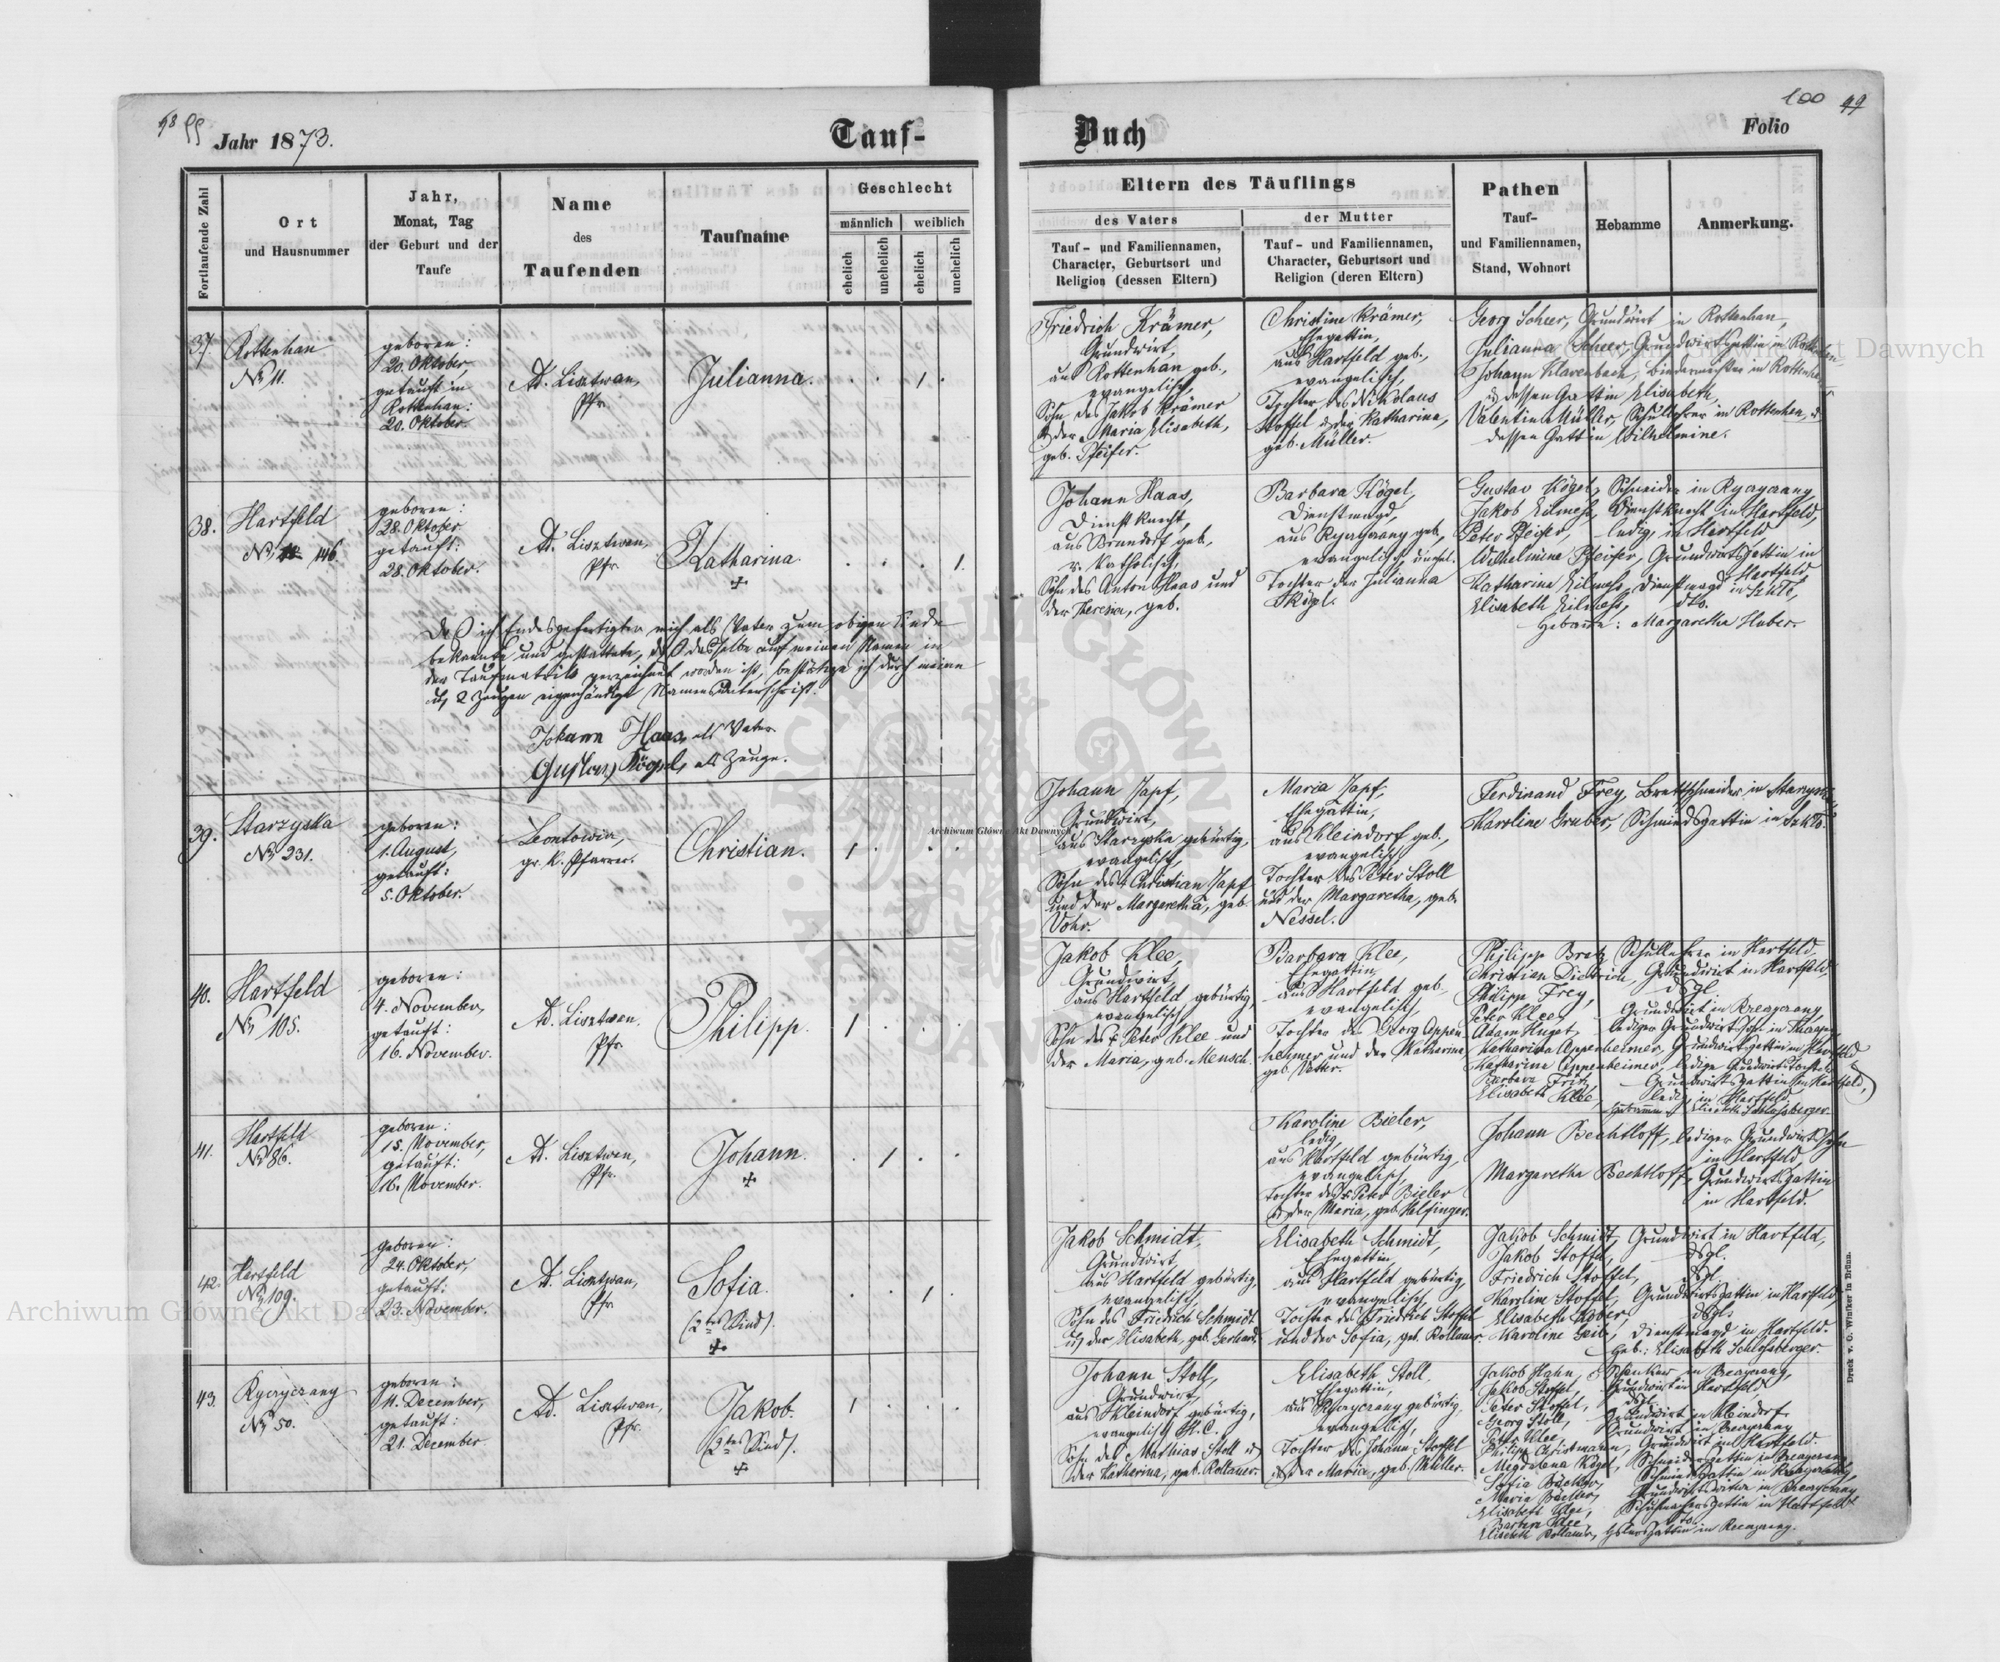 98 99
Jahr 1873.
Tauf-
Fortlaufende Zahl
Ort
und Hausnummer
Jahr,
Monat, Tag
der Geburt und der
Taufe
Name
des
Taufenden
Taufname
Geschlecht
männlich
weiblich
ehelich
unehelich
ehelich
unehelich
37.
Rottenhan
No 11.
geboren:
20. Oktober,
getauft in
Rottenhan:
20. Oktober.
Ad. Lisztwan,
Pfr.
Julianna.
1
38.
Hartfeld
No 146.
geboren:
28. Oktober
getauft:
28. Oktober.
Ad. Lisztwan,
Pfr.
Katharina.
1.
Daß ich Endesgefertigter mich als Vater zum obigen Kinde
bekannte und gestattete, daß dasselbe auf meinen Namen in
der Taufmatrik verzeichnet worden ist, bestätige ich durch meine
u. 2 Zeugen eigenhändige Namensunterschrift.
Johann Haas, als Vater
Gustav Kögel, als Zeuge.
39.
Starzyska
No 231.
geboren:
1. August,
getauft:
5. Oktober.
gr. k. Pfarrer.
Christian.
1
40.
Hartfeld
No 105.
geboren:
4. November,
getauft:
16. November.
Ad. Lisztwan,
Pfr.
Philipp.
1
41.
Hartfeld
No 86.
geboren:
15. November,
getauft:
16. November.
Ad. Lisztwan,
Pfr.
Johann.
1
42.
Hartfeld
No 109.
geboren:
24. Oktober,
getauft:
23. November.
Ad. Lisztwan,
Pfr.
Sofia.
(2tes Kind).
1
43.
Ryczyczany
No 50.
geboren:
11. December,
getauft:
21. December
Ad. Lisztwan,
Pfr.
Jakob.
(2tes Kind).
1
Buch
100 99
Folio
Eltern des Täuflings
des Vaters
der Mutter
Tauf- und Familiennamen,
Character, Geburtsort und
Religion (dessen Eltern)
Tauf- und Familiennamen,
Character, Geburtsort und
Religion (deren Eltern)
Pathen
Tauf-
und Familiennamen,
Stand, Wohnort
Hebamme
Anmerkung.
Friedrich Krämer,
Grundwirt,
aus Rottenhan geb.,
evangelisch,
Sohn des Jakob Krämer
u. der Maria Elisabeth,
geb. Pfeifer.
Christine Krämer,
Ehegattin,
aus Hartfeld geb.,
evangelisch,
Tochter des Nikolaus
Stoffel u. der Katharina,
geb. Müller.
Georg Scherer, Grundwirt in Rottenhan,
Julianna Scherer, Grundwirtsgattin in Rottenhan,
Johann Klarenbach, in Rottenhan
u. dessen Gattin Elisabeth,
Valentin Müller, Schullehrer in Rottenhan, u.
dessen Gattin Wilhelmine.
Johann Haas,
Dienstknecht,
aus Brundorf geb.,
r. katholisch,
Sohn des Anton Haas und
der Theresia, geb.
Barbara Kögel,
Dienstmagd,
aus Ryczyczany geb.,
evangelisch,
Tochter der Julianna
Kögel.
Gustav Kögel, Schneider in Ryczyczany,
Jakob Hilmess, Dienstknecht in Hartfeld,
Peter Pfeifer, ledig, in Hartfeld
Wilhelmine Pfeifer, Grundwirtsgattin in
Hartfeld
Katharina Hilmess, Dienstmagd
Elisabeth Hilmess, dto.
Hebamme: Margaretha Huber.
Johann Zapf,
Grundwirt,
aus Starzyska gebürtig,
evangelisch,
Sohn des Christian Zapf
und der Margaretha, geb.
Vohr.
Maria Zapf,
Ehegattin,
aus Kleindorf geb.,
evangelisch
Tochter des Peter Stoll
und der Margaretha, geb.
Nessel.
Ferdinand Frey, Brettschneider in Starzyska,
Karoline Gruber, Schmiedsgattin in
Jakob Klee,
Grundwirt,
aus Hartfeld gebürtig,
evangelisch
Sohn des Peter Klee und
der Maria, geb. Mensch.
Barbara Klee,
Ehegattin,
aus Hartfeld geb.
evangelisch,
Tochter des Georg Oppen-
heimer und der Katharina,
geb. Vetter.
Philipp Bretz, Schullehrer in Hartfeld,
Christian Dietrich, Grundwirt in Hartfeld,
Philipp Frey, dsgl.
Peter Klee, Grundwirt in
Adam Huget, lediger Grundwirtssohn in
Katharina Oppenheimer, Grundwirtsgattin in Hartfeld
Katharina Oppenheimer, ledige Grundwirtstochter
Barbara Fritz, Grundwirtsgattin in Hartfeld,
Elisabeth Klee, ledig in Hartfeld
Hebamme: Elisabeth Schlossberger.
Karoline Bieler,
ledig,
aus Hartfeld gebürtig,
evangelisch,
Tochter des Peter Bieler
u. der Maria, geb. Helfinger.
Johann Bechtloff, lediger Grundwirtssohn
in Hartfeld
Margaretha Bechtloff, Grundwirtsgattin
in Hartfeld.
Jakob Schmidt,
Grundwirt,
aus Hartfeld gebürtig,
evangelisch,
Sohn des Friedrich Schmidt
u. der Elisabeth, geb. Gerhard.
Elisabeth Schmidt,
Ehegattin,
aus Hartfeld gebürtig,
evangelisch,
Tochter des Friedrich Stoffel
und der Sofia, geb. Rollauer
Jakob Schmidt, Grundwirt in Hartfeld,
Jakob Stoffel, dsgl.
Friedrich Stoffel, dsgl.
Karoline Stoffel, Grundwirtsgattin in Hartfeld,
Elisabeth Kober, dsgl.
Karoline Geib, Dienstmagd in Hartfeld.
Heb.: Elisabeth Schlossberger.
Johann Stoll,
Grundwirt,
aus Kleindorf gebürtig,
evangelisch H. C.,
Sohn des Mathias Stoll u.
der Katharina, geb. Rollauer.
Elisabeth Stoll,
Ehegattin,
aus Ryczyczany gebürtig,
evangelisch,
Tochter des Johann Stoffel
u. der Maria, geb. Müller.
Jakob Hahn, Schenker in
Jakob Stoffel, Grundwirt in Hartfeld
Peter Stoffel, dsgl.
Georg Stoll, Grundwirt in Kleindorf
Peter Klee, Grundwirt in
Philipp Christmann, Grundwirt in Hartfeld.
Magdalena Kögel, Schneidersgattin in
Sofia Schmiedsgattin in
Maria in
Elisabeth Klee, in Hartfeld
Barbara Klee, dto.
Elisabeth Rollauer, in
Druck v. G. Winiker in Brünn.
Archiwum Główne Akt Dawnych
Archiwum Główne Akt Dawnych
Archiwum Główne Akt Dawnych